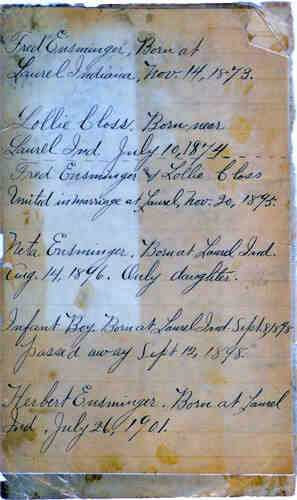 Fred Ensminger, Born at
Laurel Indiana, Nov. 14, 1873.
Lollie Closs. Born near
Laurel Ind. July 10, 1874
Fred Ensminger & Lollie Closs
United in marriage at Laurel, Nov. 20, 1895.
Neta Ensminger. Born at Laurel Ind.
Aug. 14, 1896. Only daughter.
Infant Boy. Born at Laurel Ind Sept 8, 1898
passed away Sept 12, 1898.
Herbert Ensminger. Born at Laurel
Ind. July 26, 1901.